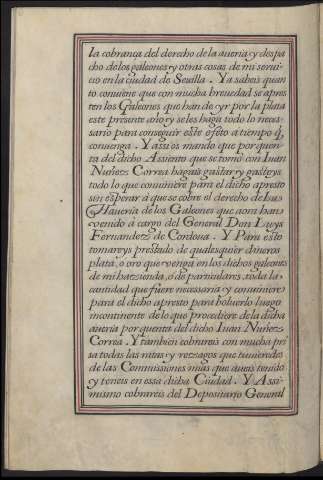 la cobrança del derecho de la aueria y despa
cho de los galeones y otras cosas de mi serui
cio en la ciudad de Seuilla. Ya sabeis quan
to conuiene que con mucha breuedad se apres
ten los Galeones que han de yr por la plata
este presente año y se les haga todo lo neces
sario para conseguir este efeto a tiempo q̃
conuenga. Y assi os mando que por quen
ta del dicho Assiento que se tomó con Iuan
Nuñez Correa hagais gastar y gasteys
todo lo que conuiniere para el dicho apresto
sin esperar á que se cobre el derecho de las
Haueria de los Galeones que aora han
venido á cargo del General Don Luys
Fernandez de Cordoua. Y Para esto
tomareys prestado de qualesquier dineros
plata, o oro que venga en los dichos galeones
de mi hazienda, o de particulares, toda la
cantidad que fuere necessaria y conuiniere
para el dicho apresto para boluerlo luego
incontinente de lo que procediere de la dicha
aueria por quenta del dicho Iuan Nuñez
Correa. Y tambien cobrareis con mucha pri
sa todas las mias y rezagos que tuuieredes
de las Commissiones mias que aueis tenido
y teneis en essa dicha Ciudad. Y Assi
mismo cobrareis del Depositario General